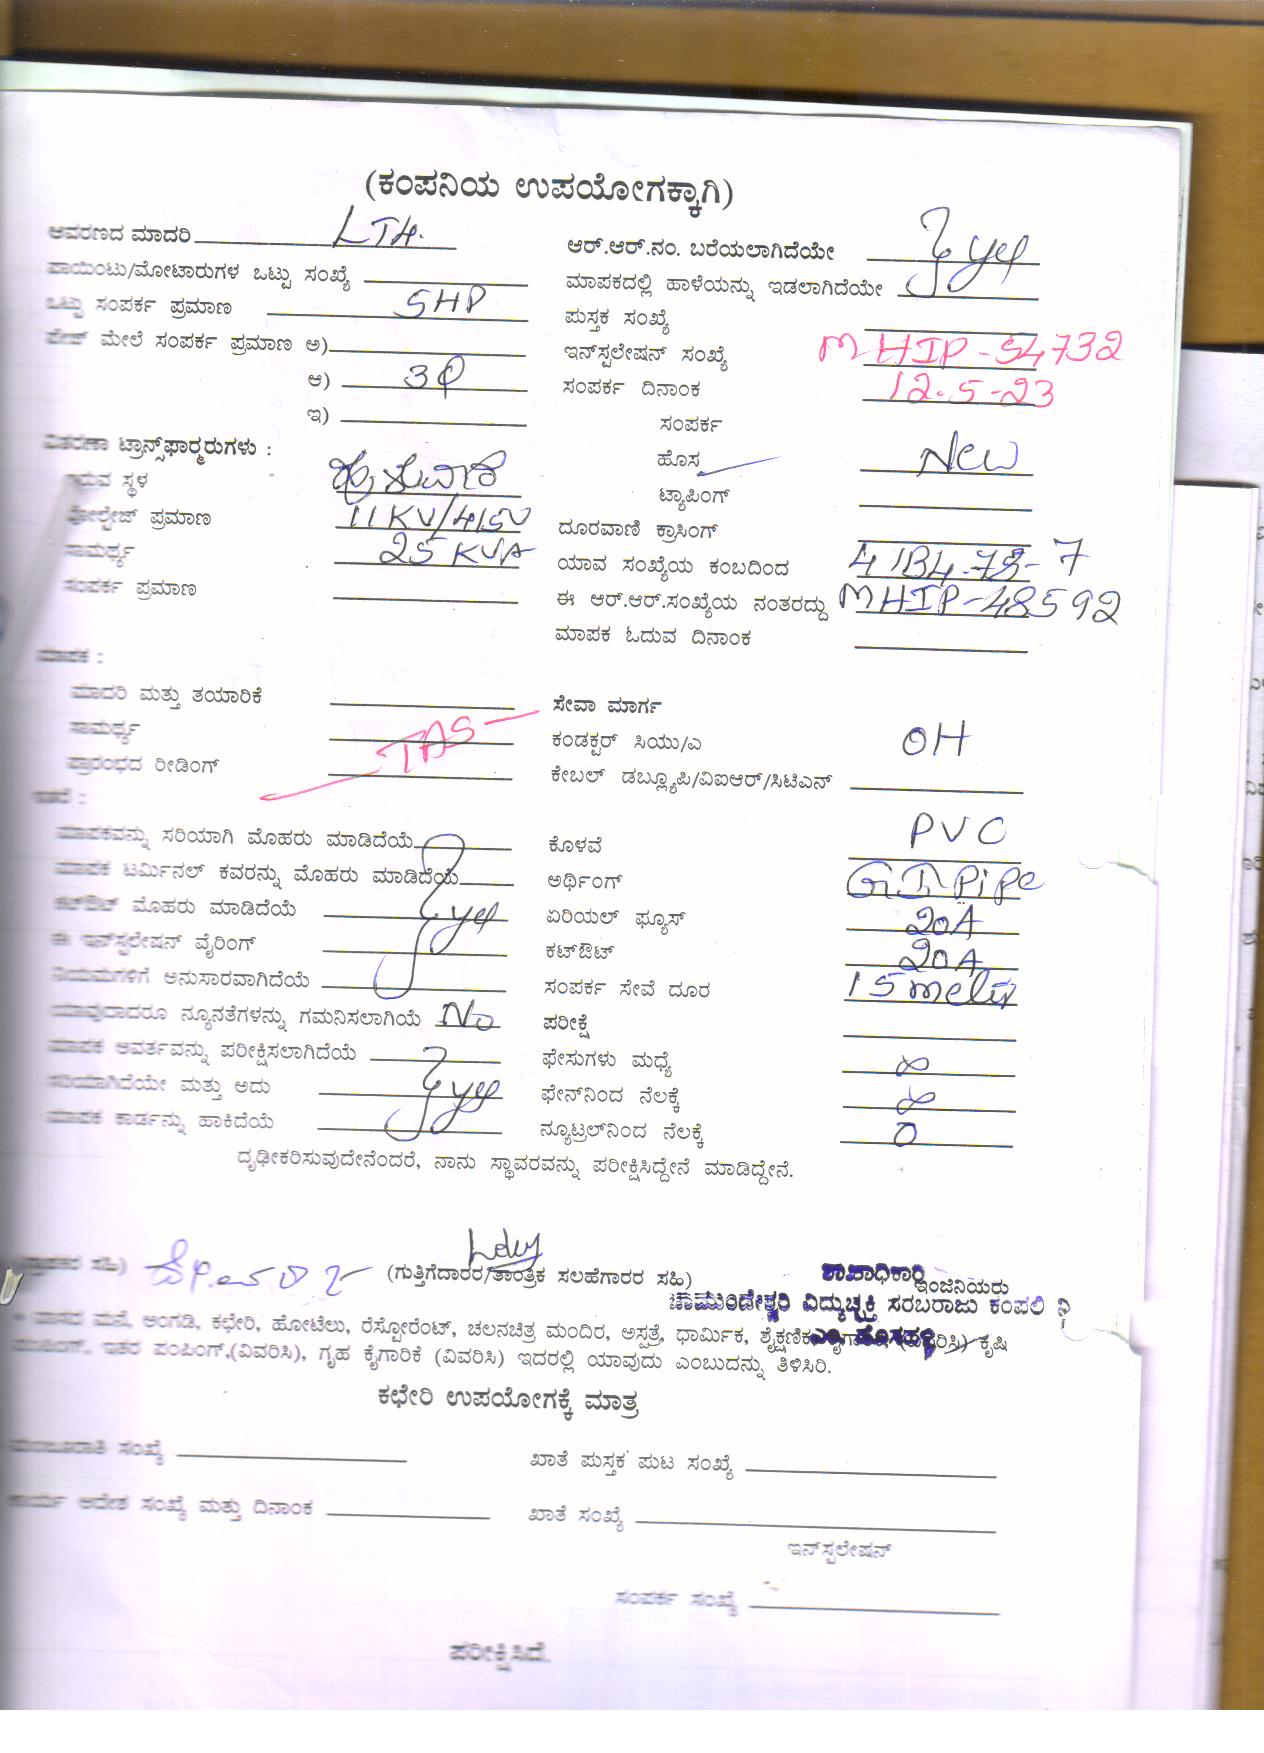 (ಕಂಪನಿಯ ಉಪಯೋಗಕ್ಕಾಗಿ)
ಆವರಣದ ಮಾದರಿ LT4.
ಪಾಯಿಂಟು/ಮೋಟಾರುಗಳ ಒಟ್ಟು ಸಂಖ್ಯೆ
ಒಟ್ಟು ಸಂಪರ್ಕ ಪ್ರಮಾಣ 5HP
ಪೇಜ್ ಮೇಲೆ ಸಂಪರ್ಕ ಪ್ರಮಾಣ ಅ)
ಆ) 3φ
ಇ)
ವಿತರಣಾ ಟ್ರಾನ್ಸ್‌ಫಾರ್ಮರುಗಳು :
ಇರುವ ಸ್ಥಳ
ವೋಲ್ಟೇಜ್ ಪ್ರಮಾಣ 11KV/415V
ಸಾಮರ್ಥ್ಯ 25 KVA
ಸಂಪರ್ಕ ಪ್ರಮಾಣ
ಮಾಪಕ :
ಮಾದರಿ ಮತ್ತು ತಯಾರಿಕೆ
ಸಾಮರ್ಥ್ಯ TAS
ಪ್ರಾರಂಭದ ರೀಡಿಂಗ್
ಮಾಪಕವನ್ನು ಸರಿಯಾಗಿ ಮೊಹರು ಮಾಡಿದೆಯೆ
ಮಾಪಕ ಟರ್ಮಿನಲ್ ಕವರನ್ನು ಮೊಹರು ಮಾಡಿದೆಯೆ
ಕಟ್‌ಔಟ್ ಮೊಹರು ಮಾಡಿದೆಯೆ yes
ಈ ಇನ್‌ಸ್ಟಲೇಷನ್ ವೈರಿಂಗ್
ನಿಯಮಗಳಿಗೆ ಅನುಸಾರವಾಗಿದೆಯೆ
ಯಾವುದಾದರೂ ನ್ಯೂನತೆಗಳನ್ನು ಗಮನಿಸಲಾಗಿಯೆ No
ಮಾಪಕ ಆವರ್ತವನ್ನು ಪರೀಕ್ಷಿಸಲಾಗಿದೆಯೆ
ಸರಿಯಾಗಿದೆಯೇ ಮತ್ತು ಅದು yes
ಮಾಪಕ ಕಾರ್ಡನ್ನು ಹಾಕಿದೆಯೆ
ಆರ್.ಆರ್.ನಂ. ಬರೆಯಲಾಗಿದೆಯೇ yes
ಮಾಪಕದಲ್ಲಿ ಹಾಳೆಯನ್ನು ಇಡಲಾಗಿದೆಯೇ
ಪುಸ್ತಕ ಸಂಖ್ಯೆ
ಇನ್‌ಸ್ಟಲೇಷನ್ ಸಂಖ್ಯೆ MHIP-54732
ಸಂಪರ್ಕ ದಿನಾಂಕ 12.5-23
ಸಂಪರ್ಕ
ಹೊಸ New
ಟ್ಯಾಪಿಂಗ್
ದೂರವಾಣಿ ಕ್ರಾಸಿಂಗ್
ಯಾವ ಸಂಖ್ಯೆಯ ಕಂಬದಿಂದ
ಈ ಆರ್.ಆರ್.ಸಂಖ್ಯೆಯ ನಂತರದ್ದು MHIP-48592
ಮಾಪಕ ಓದುವ ದಿನಾಂಕ
ಸೇವಾ ಮಾರ್ಗ
ಕಂಡಕ್ಟರ್ ಸಿಯು/ಎ OH
ಕೇಬಲ್ ಡಬ್ಲ್ಯೂಪಿ/ವಿಐಆರ್/ಸಿಟಿಎನ್
ಕೊಳವೆ PVC
ಅರ್ಥಿಂಗ್ GI Pipe
ಏರಿಯಲ್ ಫ್ಯೂಸ್ 20A
ಕಟ್‌ಔಟ್ 20A
ಸಂಪರ್ಕ ಸೇವೆ ದೂರ 15
ಪರೀಕ್ಷೆ
ಫೇಸುಗಳು ಮಧ್ಯೆ ∞
ಫೇನ್‌ನಿಂದ ನೆಲಕ್ಕೆ ∞
ನ್ಯೂಟ್ರಲ್‌ನಿಂದ ನೆಲಕ್ಕೆ 0
ದೃಢೀಕರಿಸುವುದೇನೆಂದರೆ, ನಾನು ಸ್ಥಾವರವನ್ನು ಪರೀಕ್ಷಿಸಿದ್ದೇನೆ ಮಾಡಿದ್ದೇನೆ.
(ಗುತ್ತಿಗೆದಾರರ/ತಾಂತ್ರಿಕ ಸಲಹೆಗಾರರ ಸಹಿ) ಶಾಖಾಧಿಕಾರಿ ಇಂಜಿನಿಯರು
ಚಾಮುಂಡೇಶ್ವರಿ ವಿದ್ಯುಚ್ಛಕ್ತಿ ಸರಬರಾಜು ಕಂಪಲಿ ನಿ
ಮನೆ, ಅಂಗಡಿ, ಕಛೇರಿ, ಹೋಟೆಲು, ರೆಸ್ಟೋರೆಂಟ್, ಚಲನಚಿತ್ರ ಮಂದಿರ, ಅಸ್ಪತ್ರೆ, ಧಾರ್ಮಿಕ, ಶೈಕ್ಷಣಿಕ ಕೃಷಿ
ಇತರ ಪಂಪಿಂಗ್,(ವಿವರಿಸಿ), ಗೃಹ ಕೈಗಾರಿಕೆ (ವಿವರಿಸಿ) ಇದರಲ್ಲಿ ಯಾವುದು ಎಂಬುದನ್ನು ತಿಳಿಸಿರಿ.
ಕಛೇರಿ ಉಪಯೋಗಕ್ಕೆ ಮಾತ್ರ
ಮಂಜೂರಾತಿ ಸಂಖ್ಯೆ ಖಾತೆ ಪುಸ್ತಕ ಪುಟ ಸಂಖ್ಯೆ
ಕಾರ್ಯ ಆದೇಶ ಸಂಖ್ಯೆ ಮತ್ತು ದಿನಾಂಕ ಖಾತೆ ಸಂಖ್ಯೆ
ಇನ್‌ಸ್ಟಲೇಷನ್
ಸಂಪರ್ಕ ಸಂಖ್ಯೆ
ಪರೀಕ್ಷಿಸಿದೆ.